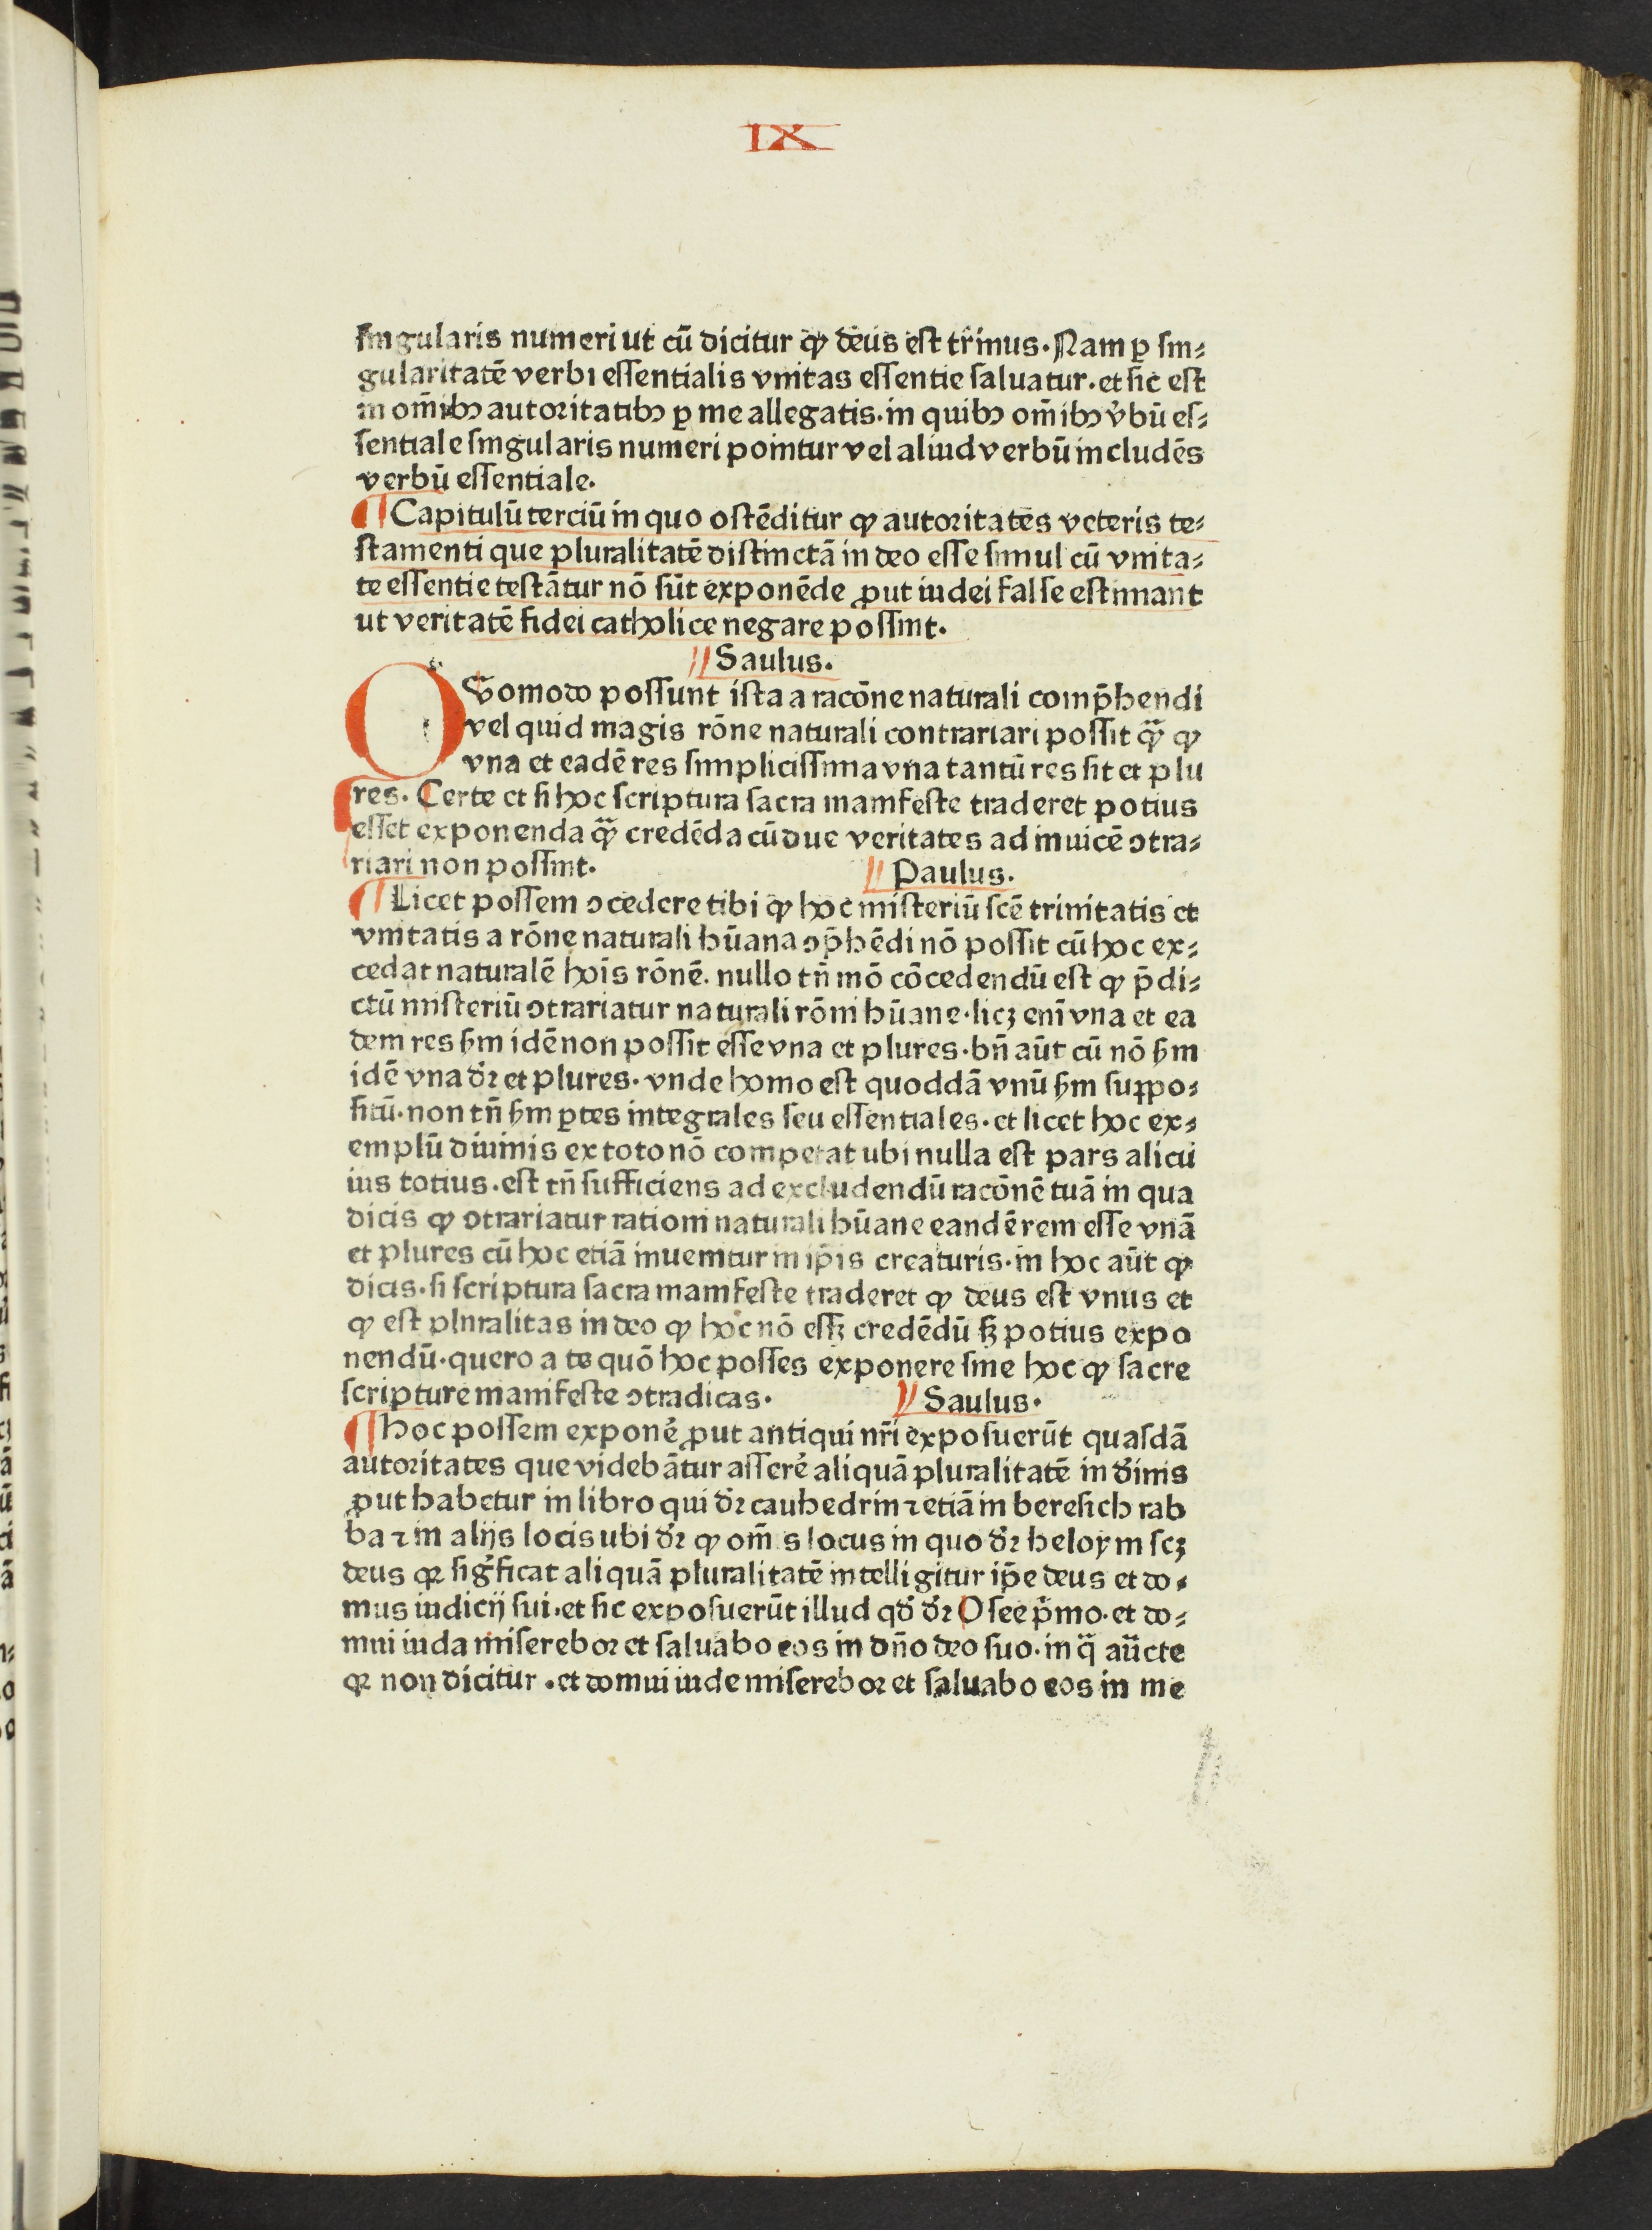 IX
singularis numeri ut cū dicitur ꝙ deus est trinus. Nam ꝑ sin⸗
gularitatē verbi essentialis vnitas essentie saluatur. et sic est
in om̄ibꝫ autoritatibꝫ ꝑ me allegatis. in quibꝫ om̄ibꝫ v̓bū es⸗
sentiale singularis numeri ponitur vel aliud verbū includēs
verbū essentiale.
¶ Capitulū terciū in quo ostēditur ꝙ autoritates veteris te⸗
stamenti que pluralitatē distinctā in deo esse simul cū vnita⸗
te essentie testātur nō sūt exponēde ꝓut iudei false estimant
ut veritatē fidei catholice negare possint.
Saulus.
QVomodo possunt ista a racōne naturali comp̄hendi
vel quid magis rōne naturali contrariari possit qᷓꝫ ꝙ
vna et eadē res simplicissima vna tantū res sit et plu
res. Certe et si hoc scriptura sacra manifeste traderet potius
esset exponenda qᷓꝫ credēda cū due veritates ad inuicē ꝯtra⸗
riari non possint. Paulus.
¶ Licet possem ꝯcedere tibi ꝙ hoc misteriū scē trinitatis et
vnitatis a rōne naturali hūana ꝯp̄hēdi nō possit cū hoc ex⸗
cedat naturalē hoīs rōnē. nullo tn̄ mō cōcedendū est ꝙ p̄di⸗
ctū misteriū ꝯtrariatur naturali rōni hūane. licꝫ enī vna et ea
dem res ẜm idē non possit esse vna et plures. bn̄ aūt cū nō ẜm
idē vna dꝛ̄ et plures. vnde homo est quoddā vnū ẜm suppo⸗
sitū. non tn̄ ẜm ꝑtes integrales seu essentiales. et licet hoc ex⸗
emplū diuinis ex toto nō competat ubi nulla est pars alicu
ius totius. est tn̄ sufficiens ad excludendū racōnē tuā in qua
dicis ꝙ ꝯtrariatur rationi naturali hūane eandē rem esse vnā
et plures cū hoc etiā inuenitur in ip̄is creaturis. in hoc aūt ꝙ
dicis. si scriptura sacra manifeste traderet ꝙ deus est vnus et
ꝙ est plnralitas in deo ꝙ hoc nō essꝫ credēdū sꝫ potius expo
nendū. quero a te quō hoc posses exponere sine hoc ꝙ sacre
scripture manifeste ꝯtradicas. Saulus.
¶ Hoc possem exponē ꝓut antiqui nr̄i exposuerūt quasdā
autoritates que videbātur asserē aliquā pluralitatē in diīnis
ꝓut habetur in libro qui dꝛ̄ cauhedrin ⁊ etiā in beresich rab
ba ⁊ in alijs locis ubi dꝛ̄ ꝙ om̄ s locus in quo dꝛ̄ heloym scꝫ
deus qꝛ sig̓ficat aliquā pluralitatē intelligitur ip̄e deus et do⸗
mus iudicij sui. et sic exposuerūt illud qd̄ dꝛ̄ Osee p̄mo. et do⸗
mui iuda miserebor et saluabo eos in dn̄o deo suo. in qᷓ auc̄te
qꝛ non dicitur. et domui iude miserebor et saluabo eos in me